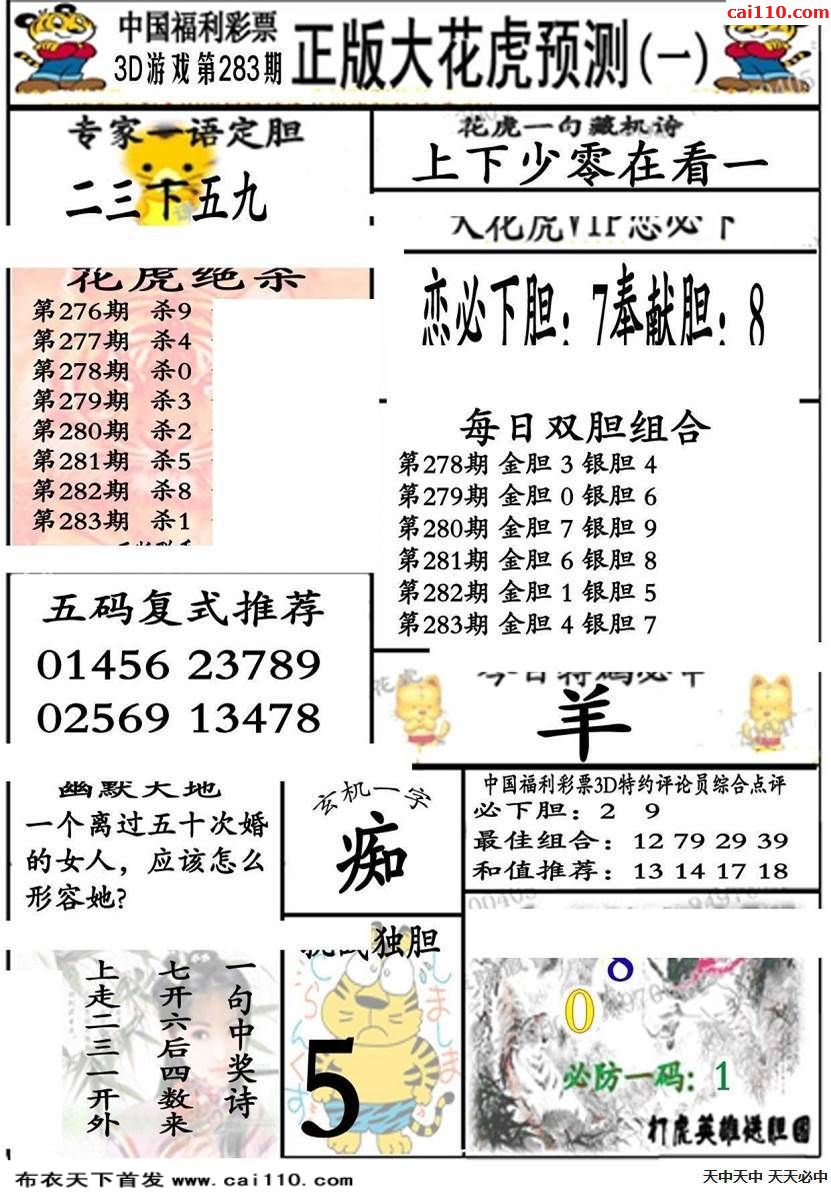 cai110.com
中国福利彩票
3D游戏第283期
正版大花虎预测(一)
专家一语定胆
二三下五九
花虎一句藏机诗
上下少零在看一
大花虎VIP恋必下
恋必下胆：7奉献胆：8
花虎绝杀
第276期 杀9
第277期 杀4
第278期 杀0
第279期 杀3
第280期 杀2
第281期 杀5
第282期 杀8
第283期 杀1
每日双胆组合
第278期 金胆 3 银胆 4
第279期 金胆 0 银胆 6
第280期 金胆 7 银胆 9
第281期 金胆 6 银胆 8
第282期 金胆 1 银胆 5
第283期 金胆 4 银胆 7
五码复式推荐
01456 23789
02569 13478
今日特码必中
羊
幽默天地
一个离过五十次婚
的女人，应该怎么
形容她?
玄机一字
痴
中国福利彩票3D特约评论员综合点评
必下胆：2 9
最佳组合：12 79 29 39
和值推荐：13 14 17 18
一句中奖诗
七开六后四数来
上走二三一开外
独胆
5
でらんくす
しましま
8
0
必防一码：1
打虎英雄送胆图
布衣天下首发 www.cai110.com
天中天中 天天必中